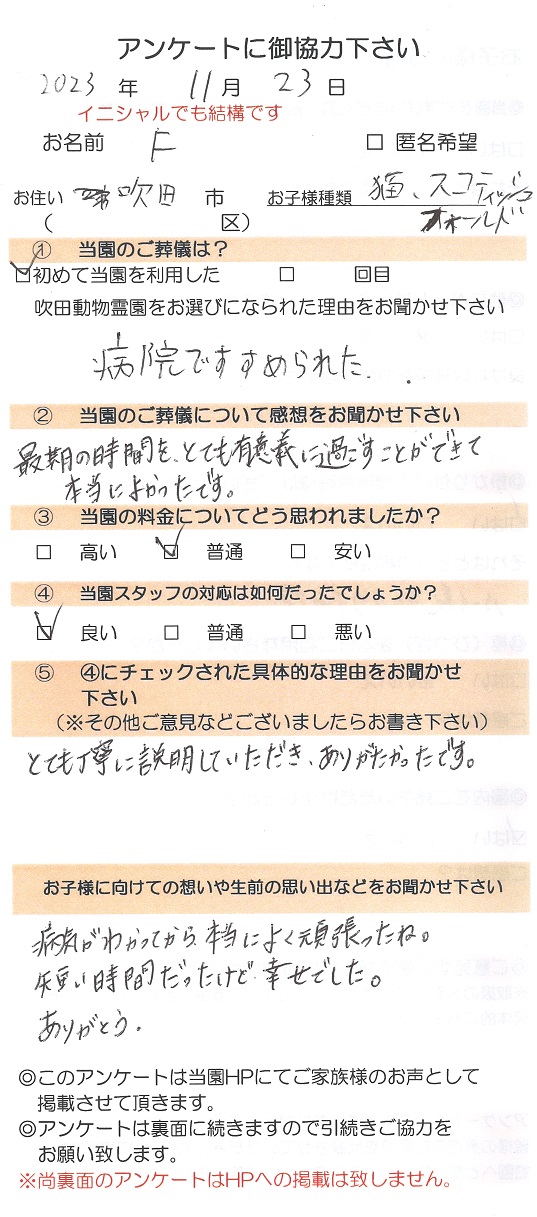 アンケートに御協力下さい
2023 年 11月 23日
イニシャルでも結構です
お名前 F □ 匿名希望
お住い 吹田 市 お子様種類 猫、スコティッシュ
( 区) フォールド
① 当園のご葬儀は？
☑初めて当園を利用した □ 回目
吹田動物霊園をお選びになられた理由をお聞かせ下さい
病院ですすめられた.
② 当園のご葬儀について感想をお聞かせ下さい
最期の時間を、とても有意義に過ごすことができて
本当によかったです。
③ 当園の料金についてどう思われましたか？
□ 高い ☑ 普通 □ 安い
④ 当園スタッフの対応は如何だったでしょうか？
☑ 良い □ 普通 □ 悪い
⑤ ④にチェックされた具体的な理由をお聞かせ
下さい
（※その他ご意見などございましたらお書き下さい）
とても丁寧に説明していただき、ありがたかったです。
お子様に向けての想いや生前の思い出などをお聞かせ下さい
病気がわかってから本当によく頑張ったね。
短い時間だったけど幸せでした。
ありがとう.
◎このアンケートは当園HPにてご家族様のお声として
掲載させて頂きます。
◎アンケートは裏面に続きますので引続きご協力を
お願い致します。
※尚裏面のアンケートはHPへの掲載は致しません。